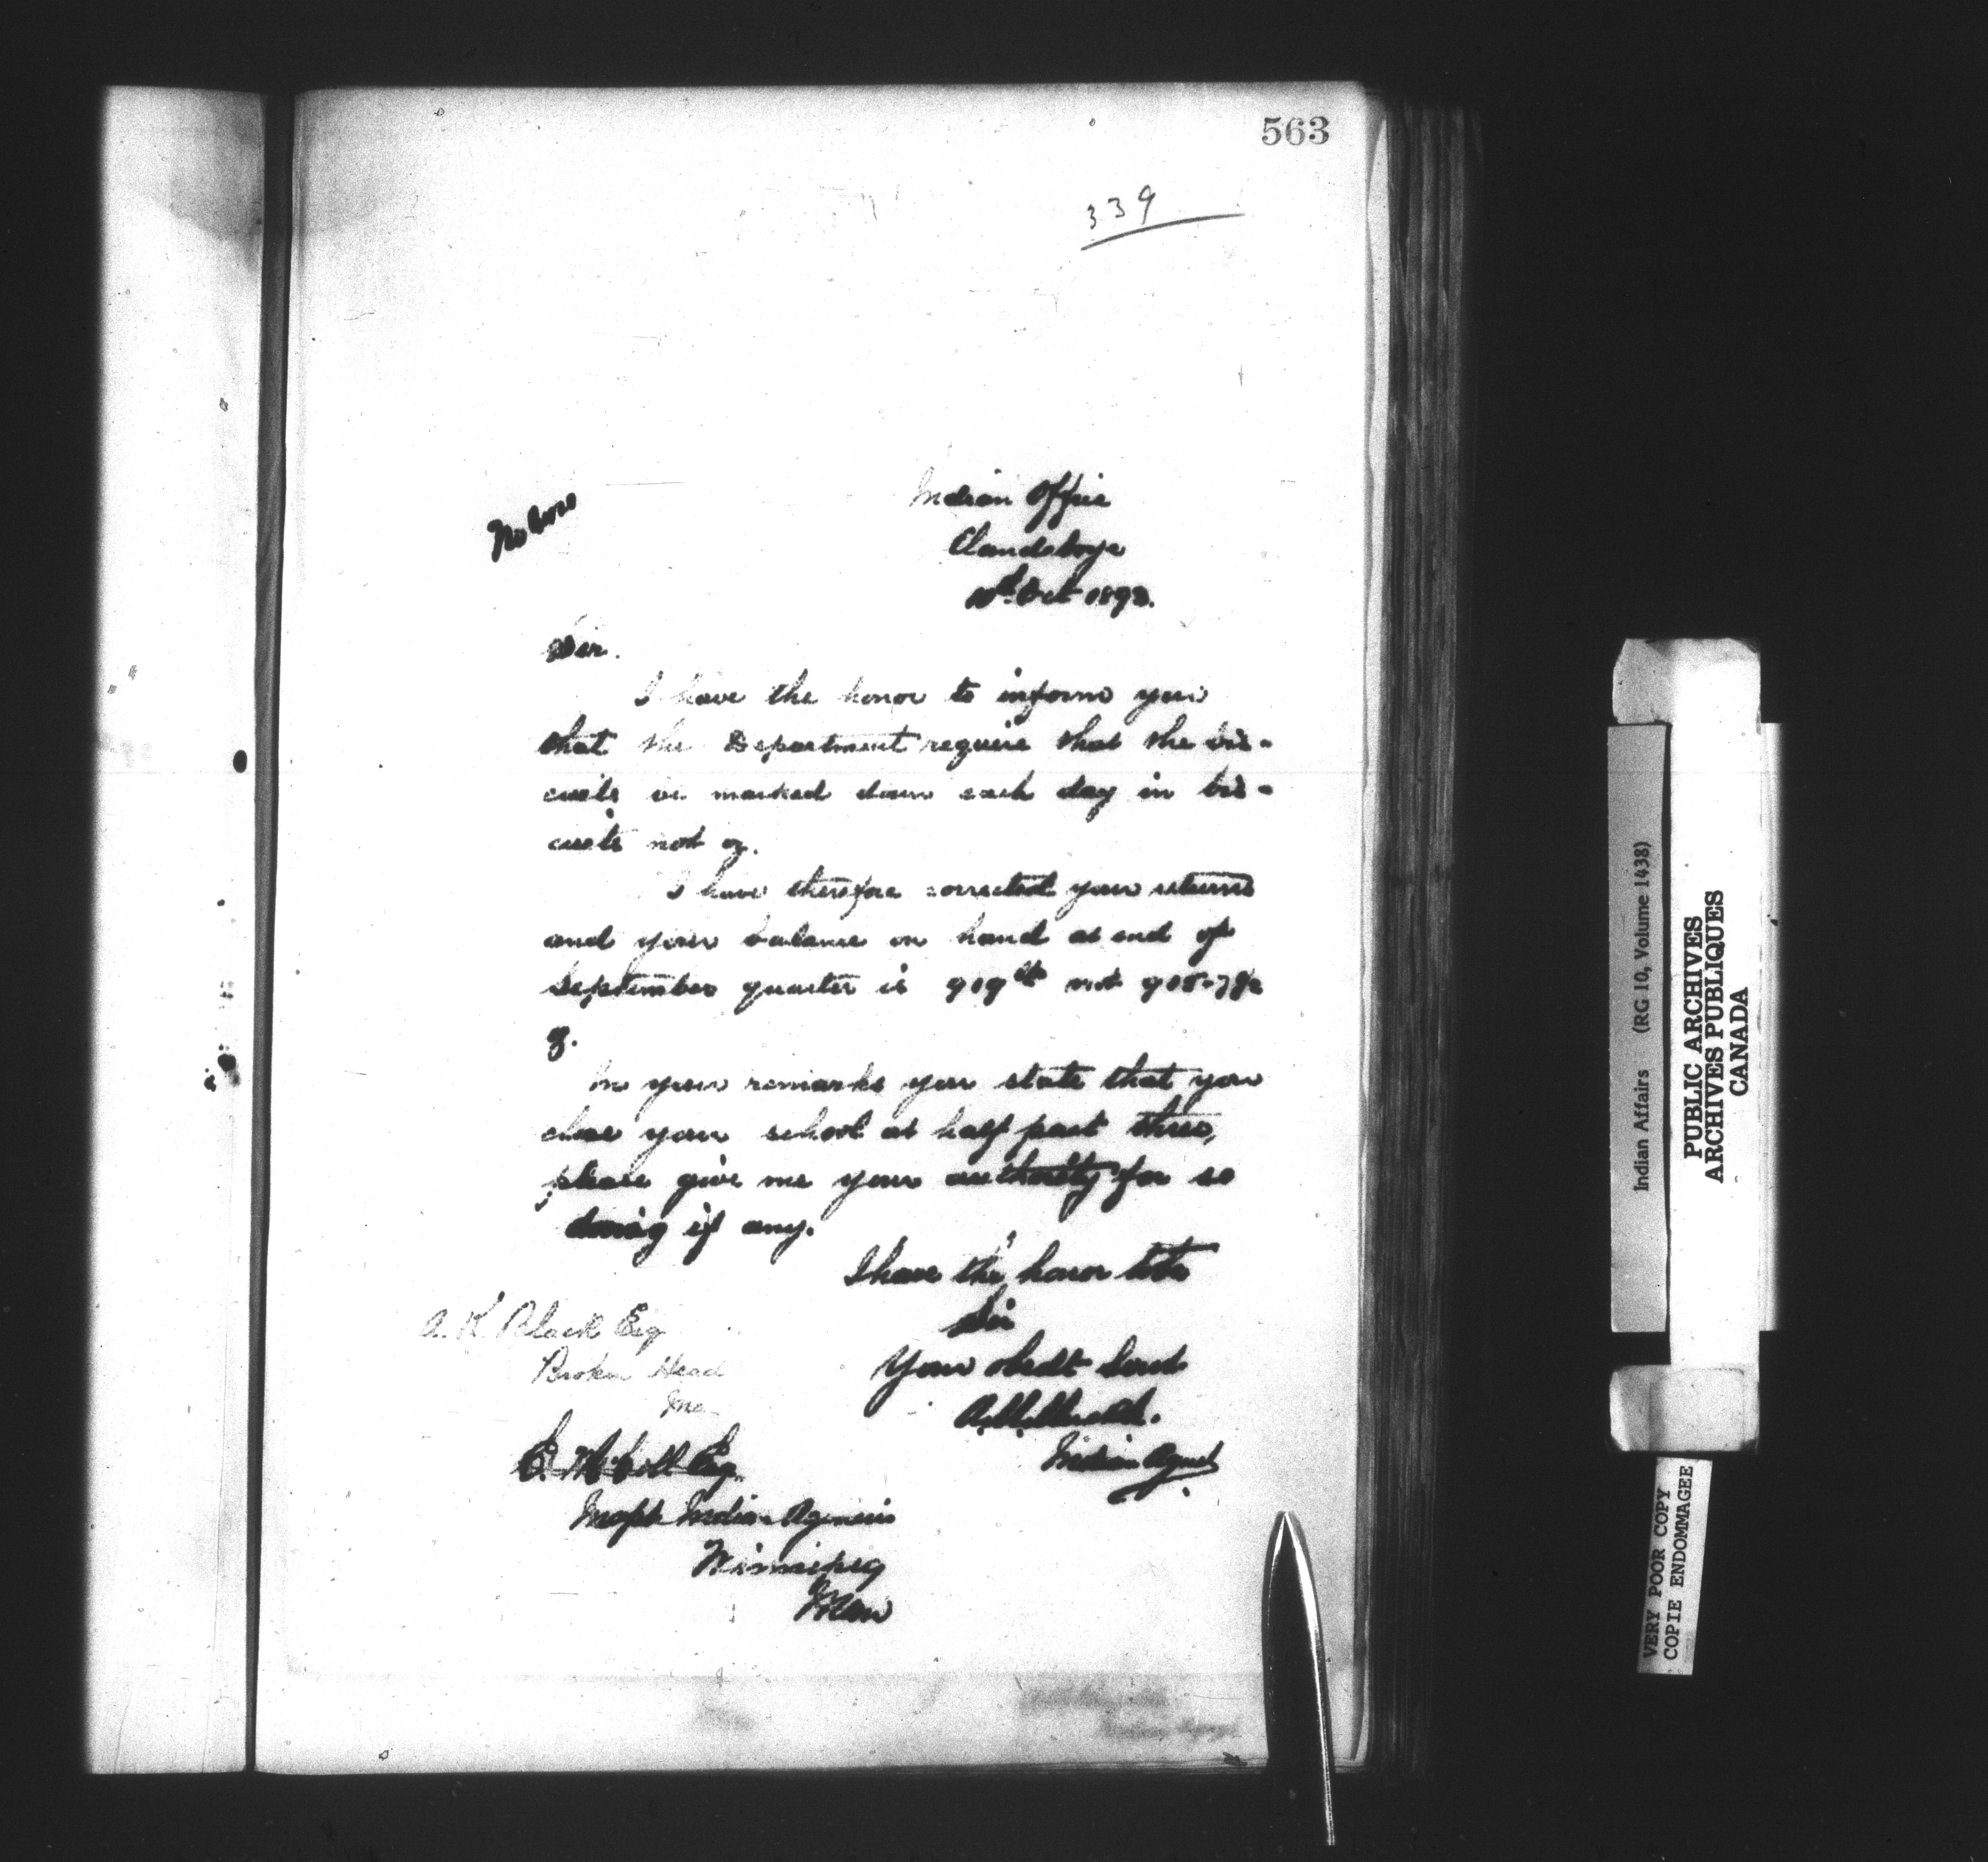 563
339
Indian Office
Clandeboye
Oct 1893.
Sir.
I have the honor to inform you
that the Department require that the bis-
cuits be marked down each day in bis-
cuits not oz.
I have therefore corrected your returns
and your balance on hand at end of
September quarter is 909 not
oz.
In your remarks you state that you
close your school at half past three,
please give me your authority for so
doing if any.
I have the honor to be
Sir
Your obedt Servt
Indian Agent
A. K. Black Esq
Broken Head
E. McColl Esq
Inspt Indian Agencies
Winnipeg
Man
Indian Affairs (RG 10, Volume 1438)
PUBLIC ARCHIVES
ARCHIVES PUBLIQUES
CANADA
VERY POOR COPY
COPIE ENDOMMAGEE